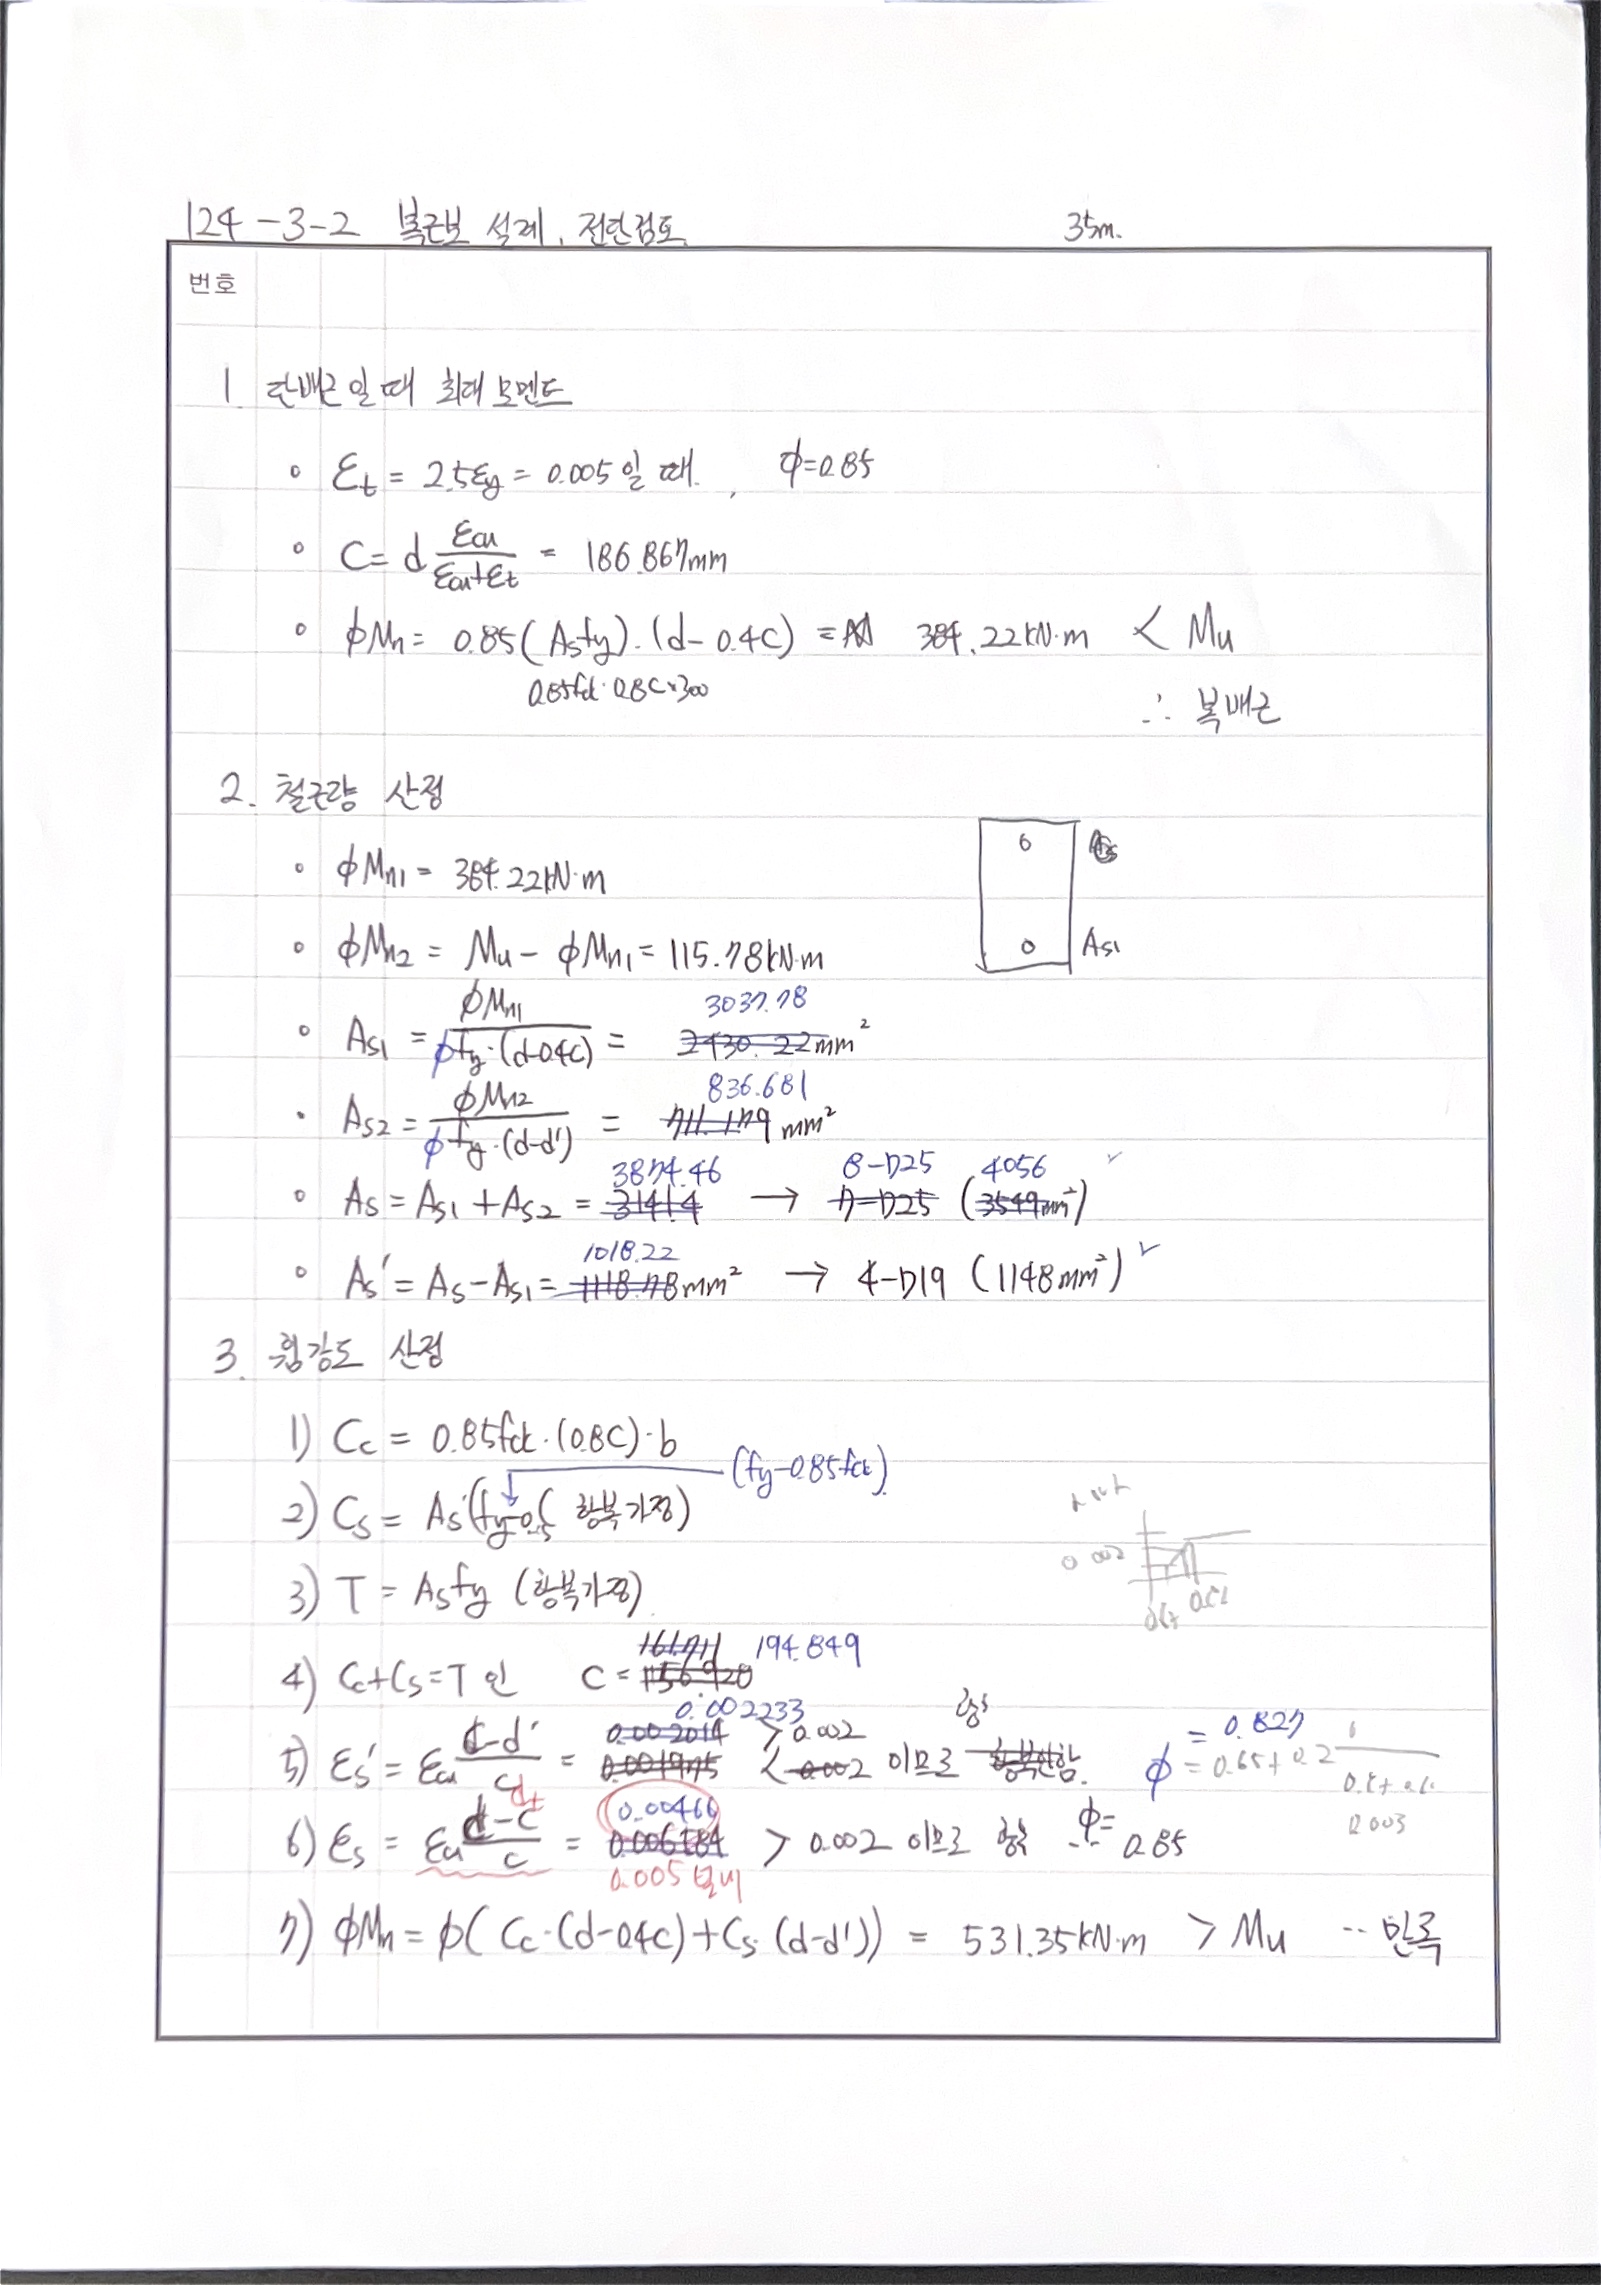 124-3-2 복근보 설계, 전단검토. 35m.
번호
1. 단배근일 때 최대모멘트
◦ εt = 2.5εy = 0.005일 때, φ=0.85
◦ C = d εcu/(εcu+εt) = 186.867mm
◦ φMn = 0.85(Asfy)·(d-0.4C) = 384.22kN·m < Mu
0.85fck·0.8C×300
∴ 복배근
2. 철근량 산정
◦ φMn1 = 384.22kN·m
◦ φMn2 = Mu - φMn1 = 115.78kN·m
As1
◦ As1 = φMn1/(φfy·(d-0.4C)) = 2430.22mm² 3037.78
• As2 = φMn2/(φfy·(d-d')) = 711.179mm² 836.681
◦ As = As1 + As2 = 3141.4 3874.46 → 7-D25 8-D25 (3549mm²) 4056 ✓
◦ As' = As - As1 = 1118.78mm² 1018.22 → 4-D19 (1148mm²) ✓
3. 휨강도 산정
1) Cc = 0.85fck·(0.8C)·b
2) Cs = As'( 항복가정) (fy-0.85fck)
3) T = Asfy (항복가정)
0.002
4) Cc+Cs=T 인 C = 156.920 161.711 194.849
5) εs' = εcu (c-d')/c = 0.001975 0.002014 0.002233 > 0.002 < 0.002 이므로 항복안함. 항복
φ = 0.65+0.2 = 0.827
0.003
6) εs = εcu (dt-c)/c = 0.006184 0.00466 > 0.002 이므로 항복 φ= 0.85
0.005 넘게
7) φMn = φ(Cc·(d-0.4C)+Cs·(d-d')) = 531.35kN·m > Mu ∴ 만족